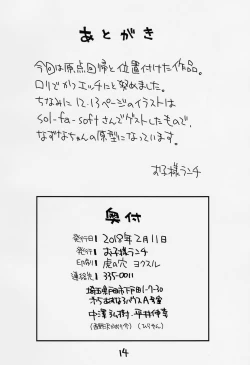 あとがき
今回は原点回帰と位置付けた作品。
ロリでかつエッチにと努めました。
ちなみに12.13ページのイラストは
sol-fa-softさんでゲストしたもので、
なずなちゃんの原型になっています。
お子様ランチ
奥付
発行日 2018年2月11日
発行 お子様ランチ
印刷 虎の穴
連絡先 335-0011
埼玉県戸田市下戸田1-7-30
14